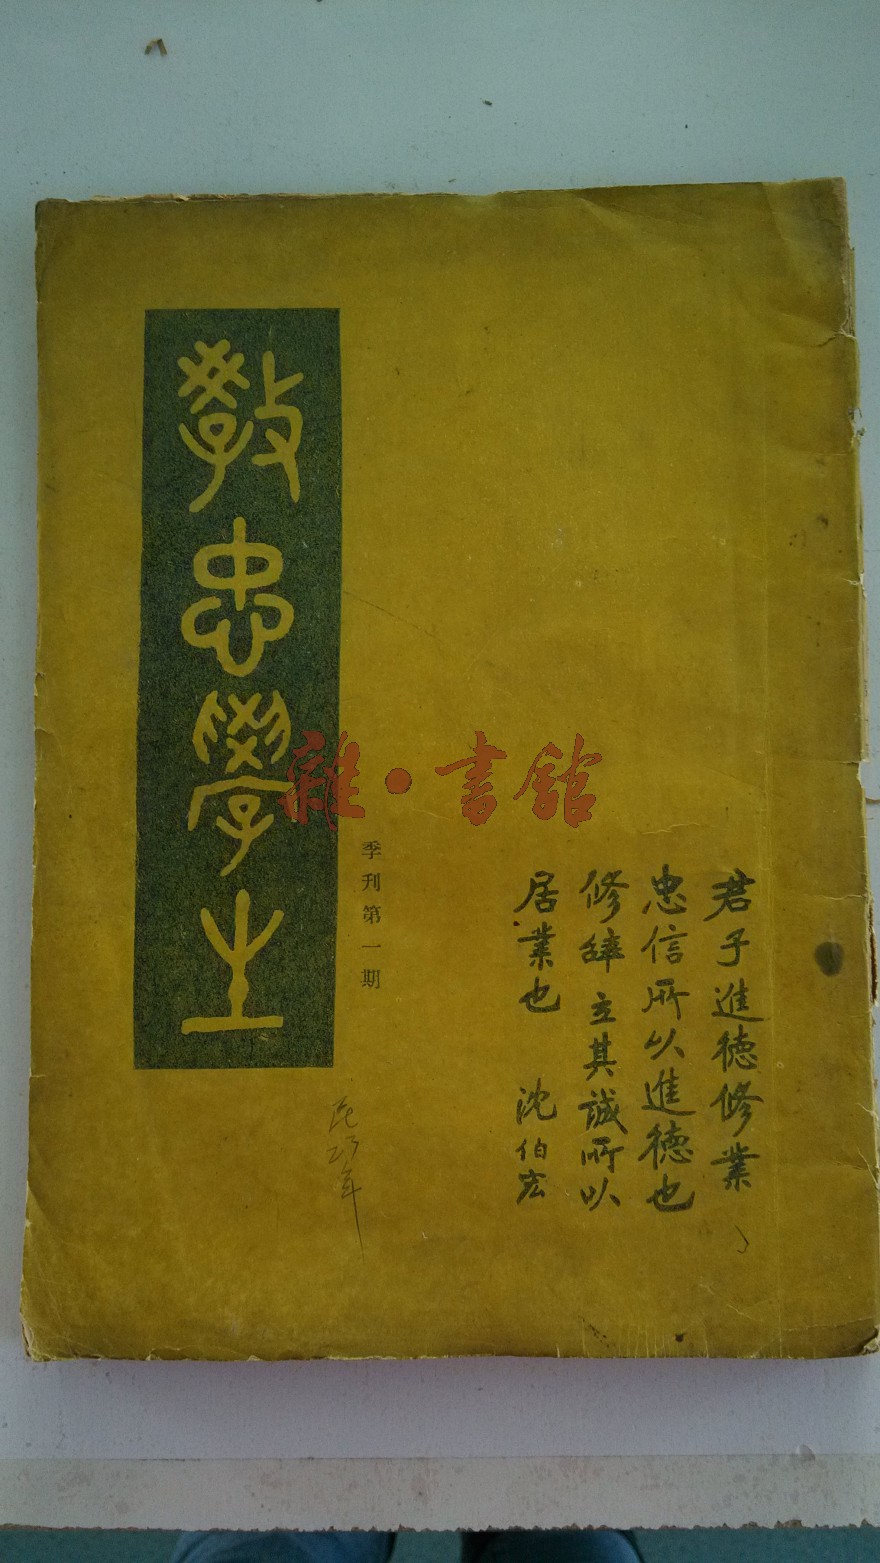 君子進德修業
忠信所以進德也
修辭立其誠所以
居業也 沈伯宏
季刊第一期
教忠學生
民23年
雜·書館